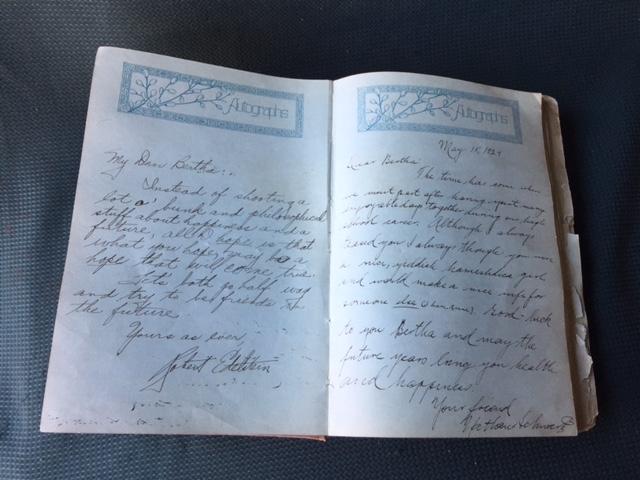 Autographs
My Dear Bertha:-
Instead of shooting a
lot o' bunk and philosophical
stuff about happiness and a
future, all I hope is that
what you hope, may be a
hope that will come true.
Let's both go half way
and try to be friends in
the future.
Yours as ever,
Robert Edelstein
Autographs
May 18, 1924
Dear Bertha
The time has come when
we must part after having spent many
enjoyable days together during our high
school career. Although I always
teased you I always though you were
a nice, yiddish girl
and would make a nice wife for
someone else Good luck
to you Bertha and may the
future years bring you health
and happiness.
Your friend